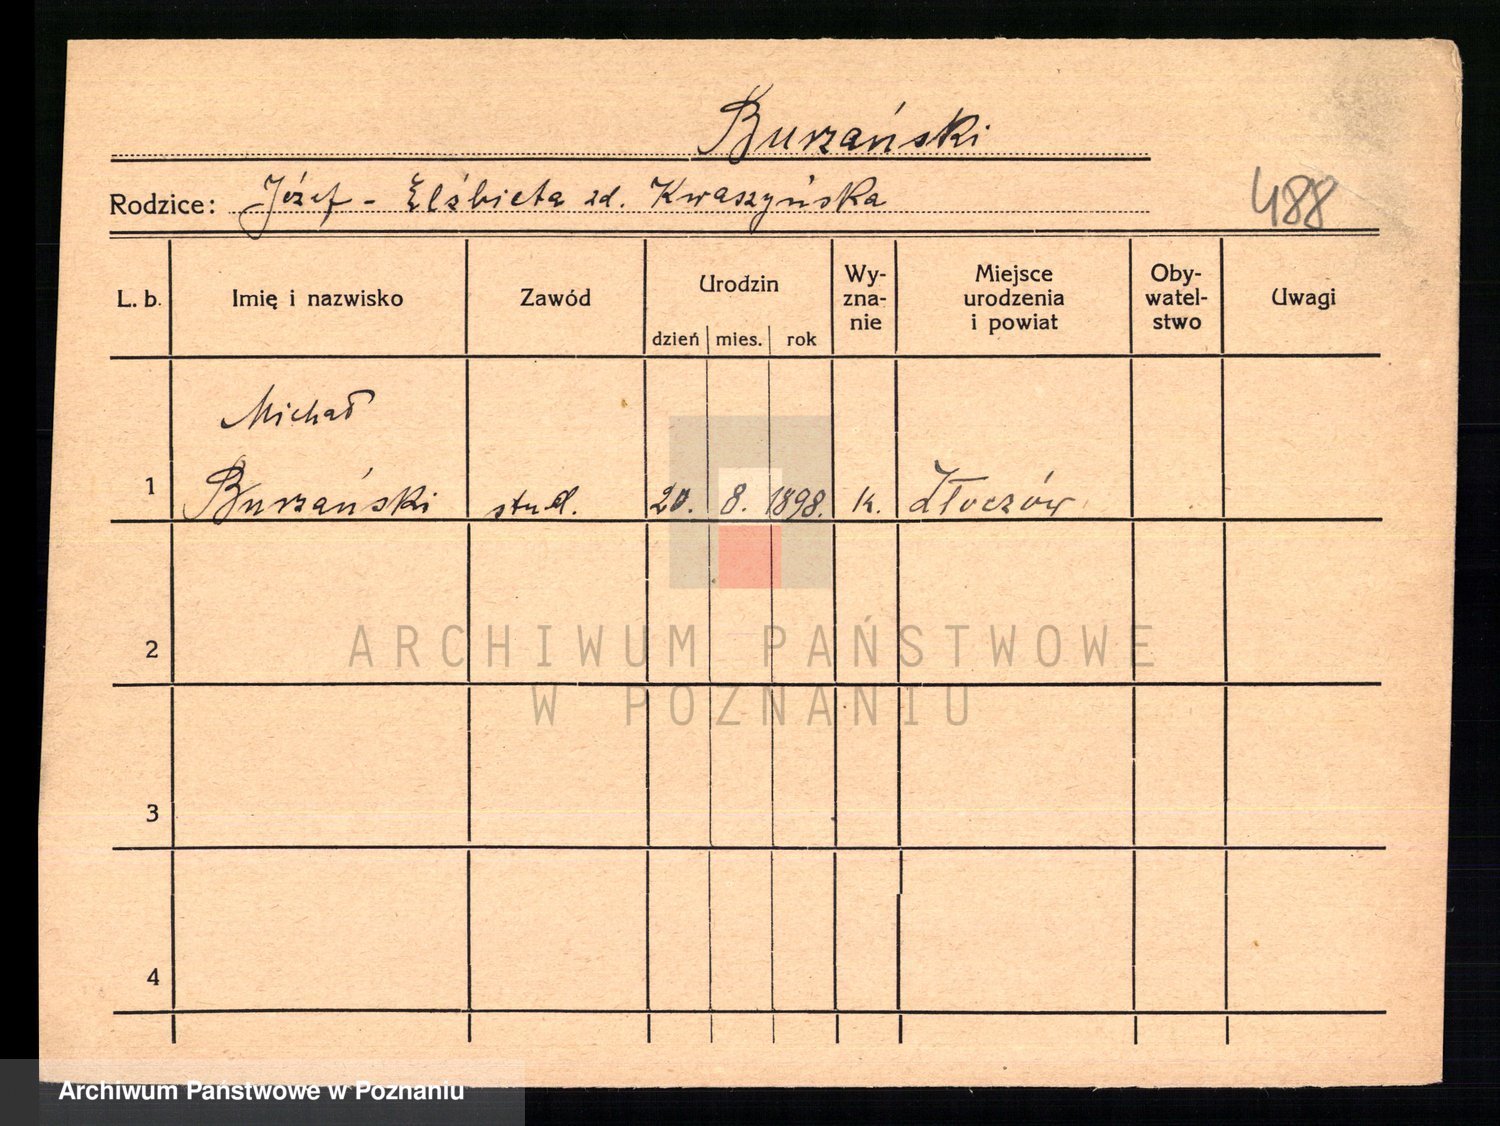 Burzański
Rodzice: Józef - Elżbieta zd. Kwaszyńska
488
L. b. Imię i nazwisko Zawód Urodzin dzień mies. rok Wy-zna-nie Miejsce urodzenia i powiat Oby-watel-stwo Uwagi
Michał
1 Burzański stud. 20. 8. 1898. k. Złoczów
2
ARCHIWUM PAŃSTWOWE
W POZNANIU
3
4
Archiwum Państwowe w Poznaniu